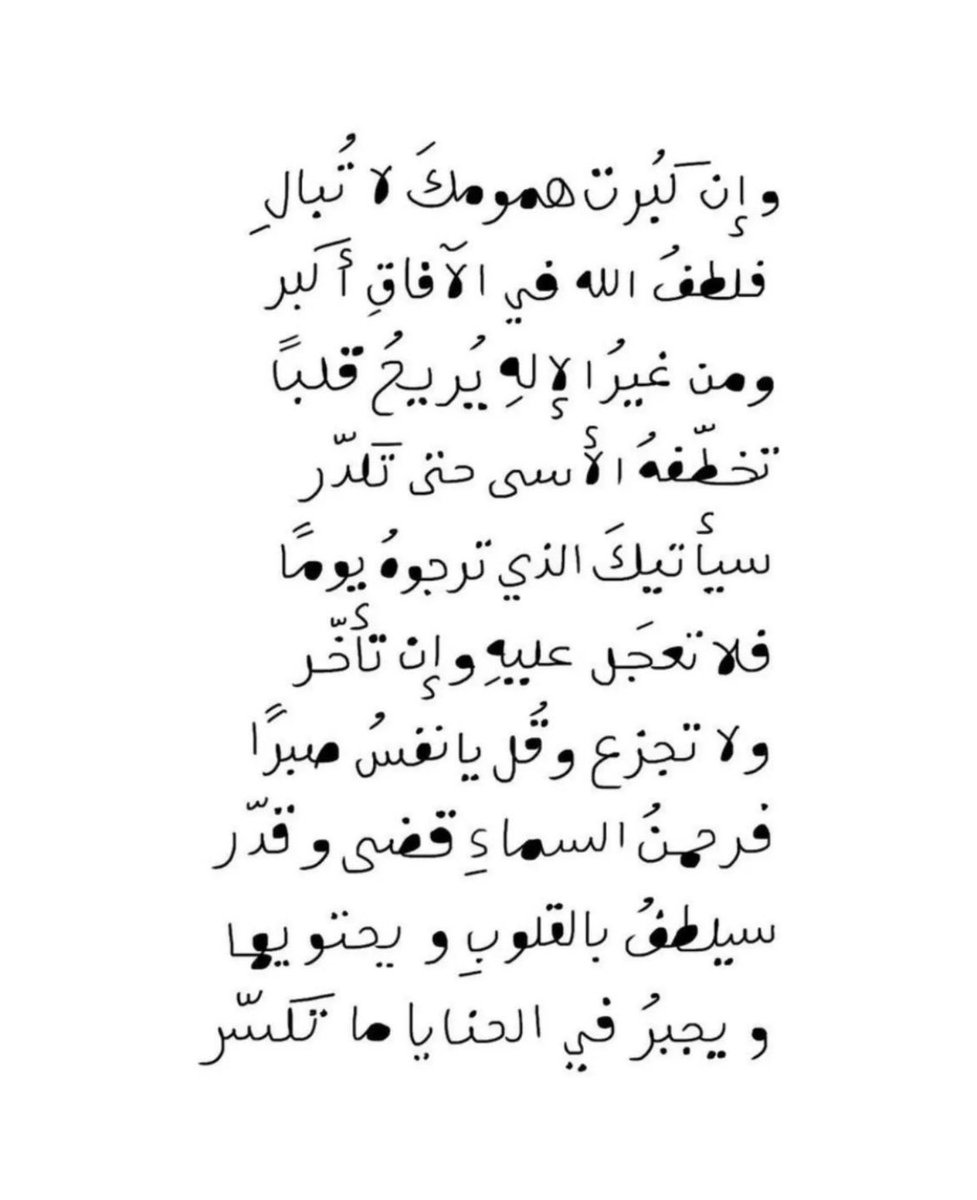 وإن كَبُرت همومكَ لا تُبالِ
فلطفُ الله في الآفاقِ أَكبر
ومن غيرُ الإلهِ يُريحُ قلباً
تخطّفهُ الأسى حتى تَكدّر
سيأتيكَ الذي ترجوهُ يوماً
فلا تعجَل عليهِ وإن تأخّر
ولا تجزع وقُل يا نفسُ صبرًا
فرحمنُ السماءِ قضى وقدّر
سيلطفُ بالقلوبِ ويحتويها
ويجبرُ في الحنايا ما تَكسّر